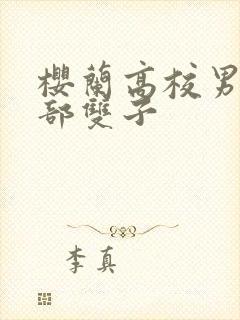 櫻蘭高校男
部雙子
李真